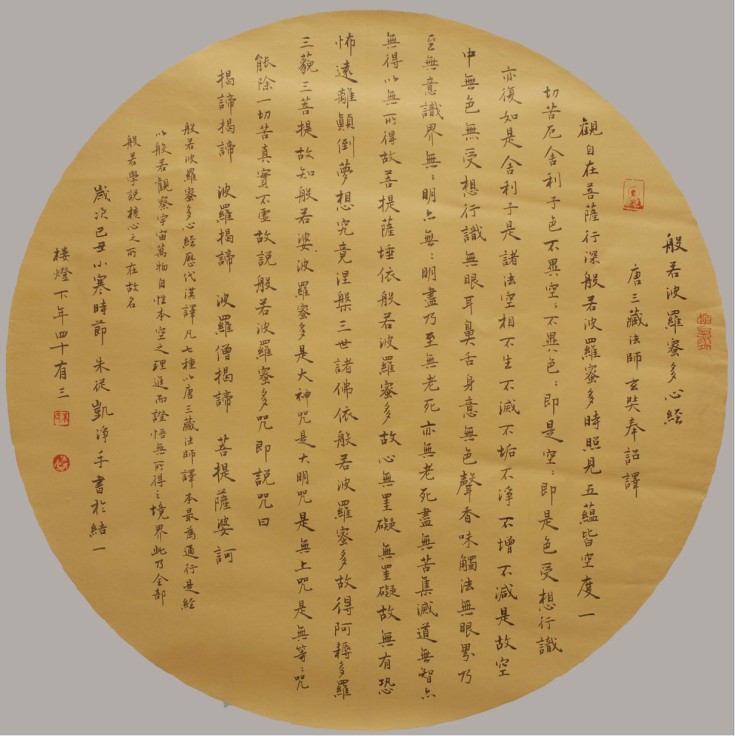 般若波羅蜜多心經
唐三藏法師玄奘奉詔譯
觀自在菩薩行深般若波羅蜜多時照見五蘊皆空度一
切苦厄舍利子色不異空:不異色:即是空:即是色受想行識
亦復如是舍利子是諸法空相不生不滅不垢不淨不增不減是故空
中無色無受想行識無眼耳鼻舌身意無色聲香味觸法無眼界乃
至無意識界無:明亦無:明盡乃至無老死亦無老死盡無苦集滅道無智亦
無得以無所得故菩提薩埵依般若波羅蜜多故心無罣礙無罣礙故無有恐
怖遠離顛倒夢想究竟涅槃三世諸佛依般若波羅蜜多故得阿耨多羅
三藐三菩提故知般若婆:波羅蜜多是大神咒是大明咒是無上咒是無等:咒
能除一切苦真實不虛故說般若波羅蜜多咒即說咒曰
揭諦揭諦 波羅揭諦 波羅僧揭諦 菩提薩婆訶
般若波羅蜜多心經歷代漢譯凡七種以唐三藏法師譯本最為通行是經
以般若觀察宇宙萬物自性本空之理進而證悟無所得之境界此乃全部
般若學說核心之所在故名
歲次己丑小寒時節 朱從凱淨手書於結一
樓燈下年四十有三